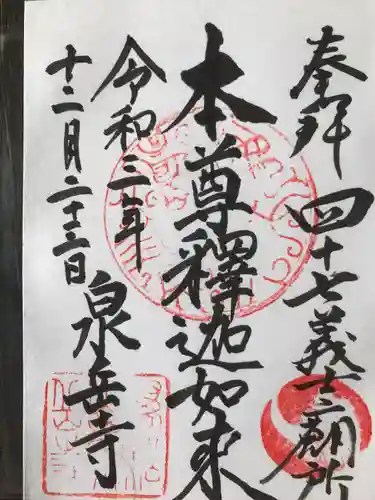 奉拝 四十七義士霊廟所
本尊釋迦如来
令和三年
十二月二十三日
泉岳寺